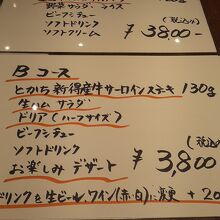 野菜サンダ ライス
ビーフシチュー
ソフトドリンク (税込み)
ソフトクリーム ¥38,00-
Bコース
とかち新得産牛サーロインステキ 130g
生ハム サラダ
ドリア(ハーフサイズ)
ビーフシチュー
ソフトドリンク (税込)
お楽しみ デザート ¥3,800
ドリンクを生ビール,ワイン(赤,白)に変更 +20